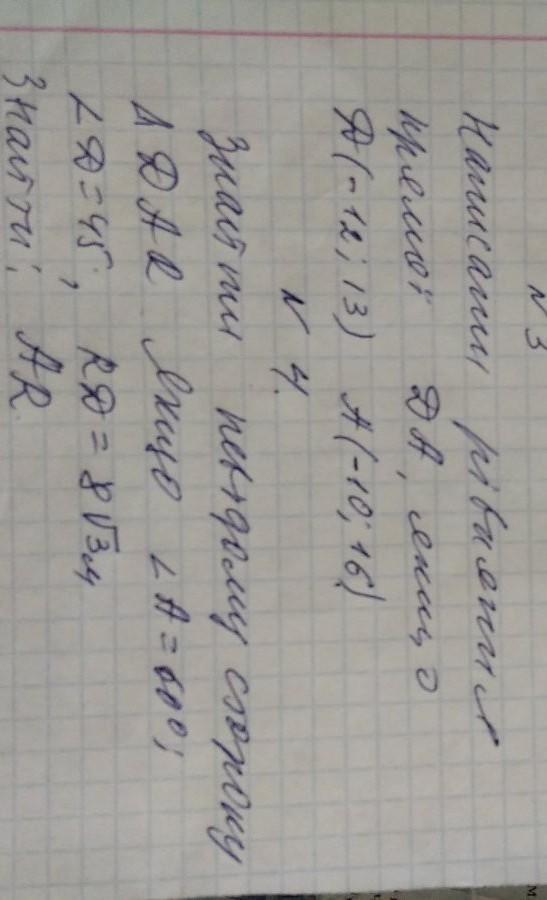 N 3
Написати рівняння
прямої DA, якщо
D(-12; 13) A(-10; 16)
N 4.
Знайти невідому сторону
Δ DAR якщо ∠A = 60°;
∠D = 45°, RD = 8√3 м
Знайти: AR.